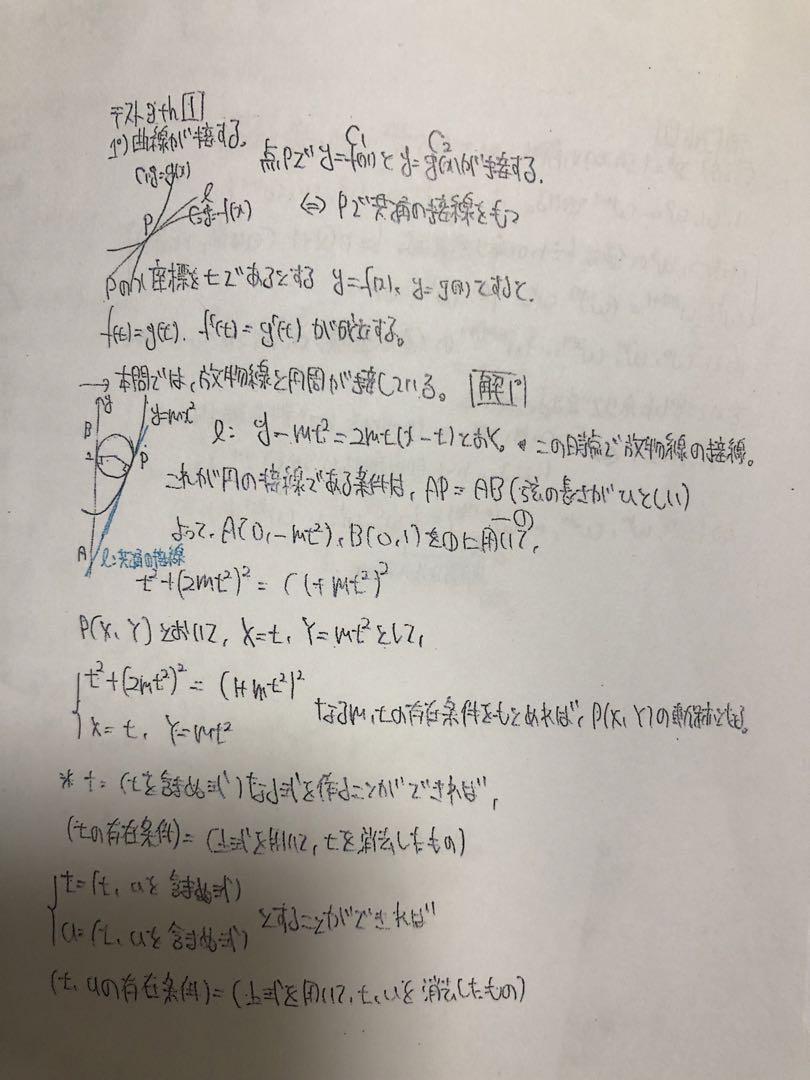 テスト gth [1]
1°) 曲線が接する。
C₂: y=g(x)
l
C₁: y=f(x)
P
点Pで y=f(x) と y=g(x) が接する。
C₁ C₂
⇔ Pで共通の接線をもつ
Pのx座標をtであるとする y=f(x), y=g(x) とすると、
f(t)=g(t). f'(t)=g'(t) が成立する。
→本問では、放物線と円周が接している。 [解1°]
y
y=mx²
B
2
P
A
l:共通の接線
l: y-mt²=2mt(x-t) とおく。 この時点で放物線の接線。
これが円の接線である条件は、AP=AB (弦の長さがひとしい)
―①
よって、A(0,-mt²), B(0,1)を①に用いて、
t²+(2mt²)²=(1+mt²)²
P(X, Y) とおいて、X=t, Y=mt² として、
t²+(2mt²)²=(1+mt²)²
X=t, Y=mt²
なるm,tの存在条件をもとめれば、P(X, Y)の軌跡となる。
* t=(tを含まぬ式)なる式を作ることができれば、
(tの存在条件)=(上式を用いて、tを消去したもの)
t=(t, uを含まぬ式)
u=(t, uを含まぬ式)
とすることができれば
(t, uの存在条件)=(上式を用いて、t, uを消去したもの)